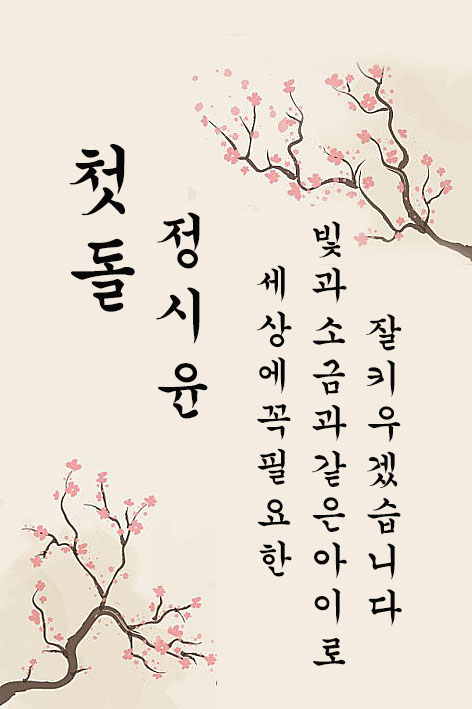 첫돌
정시윤
세상에꼭필요한
빛과소금과같은아이로
잘키우겠습니다